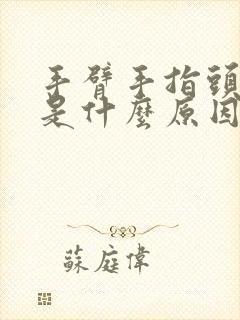 手臂手指頭
是什麼原因
蘇庭偉